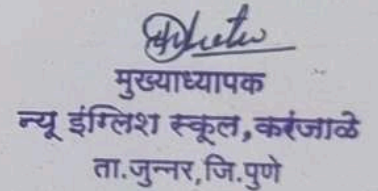 मुख्याध्यापक
न्यू इंग्लिश स्कूल,करंजाळे
ता.जुन्नर,जि.पुणे